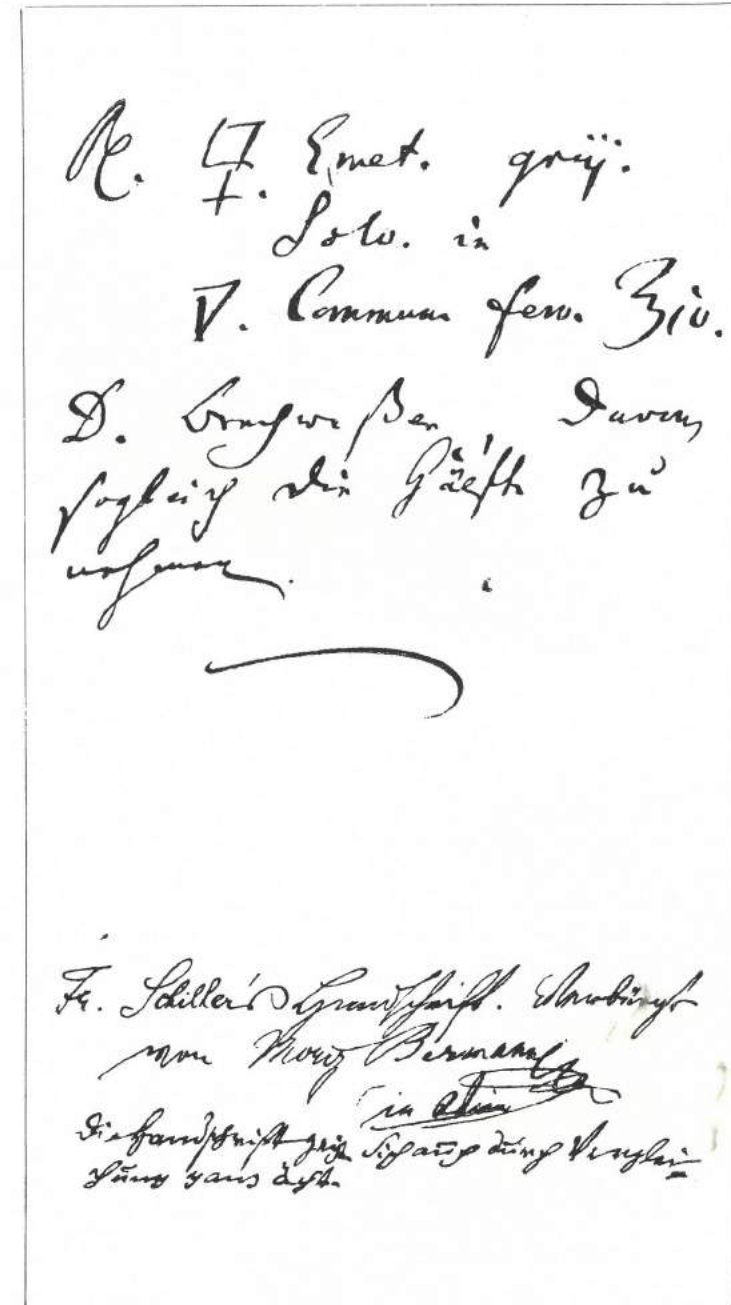 Rc. 🜿. Emet. gr iij.
Solv. in
🜄. Commun. ferv. ℥iv.
D. Brechwaßer, davon
sogleich die Hälfte zu
nehmen.
Fr. Schiller's Handschrift. Verbürgt
von Moriz Bermann
in Wien
Die Handschrift zeigt sich auch durch Verglei-
chung ganz ächt.